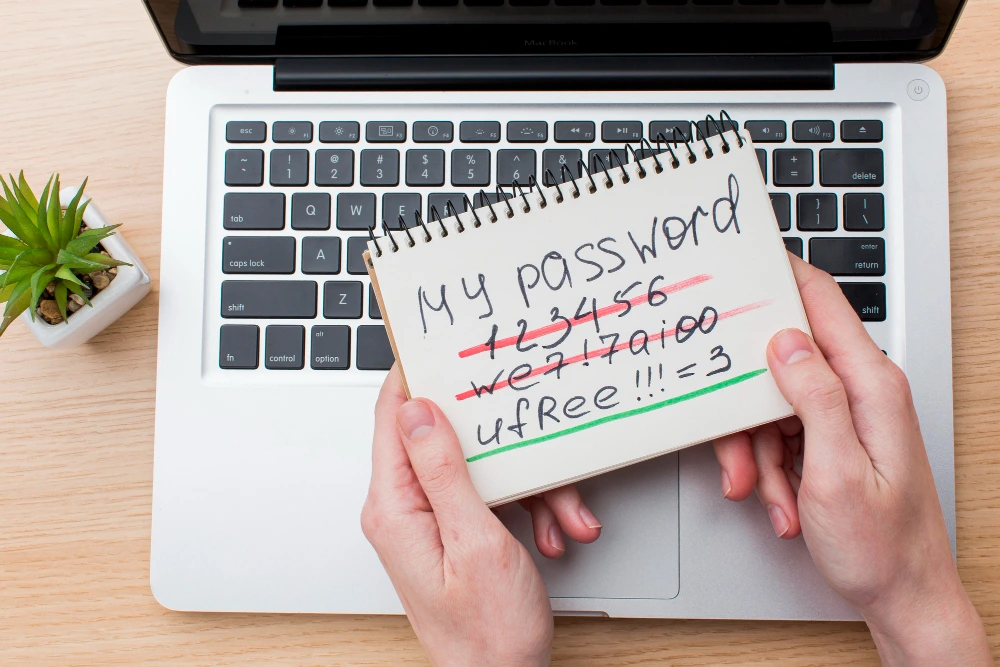 MacBook
esc F1 F2 F3 F4 F5 F6 F7 F8 F10 F11 F12
~ ! 1 @ 2 # 3 $ 4 % 5 ^ 6 & + = delete
tab Q W E } ] | \
caps lock A enter return
shift Z shift
fn control alt option
My password
123456
we7!7aioo
ufRee!!!=3